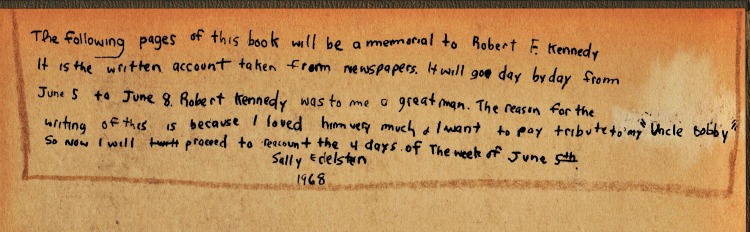 The following pages of this book will be a memorial to Robert F. Kennedy
It is the written account taken from newspapers. It will goe day by day from
June 5 to June 8. Robert Kennedy was to me a great man. The reason for the
writing of this is because I loved him very much & I want to pay tribute to my "Uncle Bobby"
So now I will proceed to reacount the 4 days of The week of June 5th.
Sally Edelstein
1968